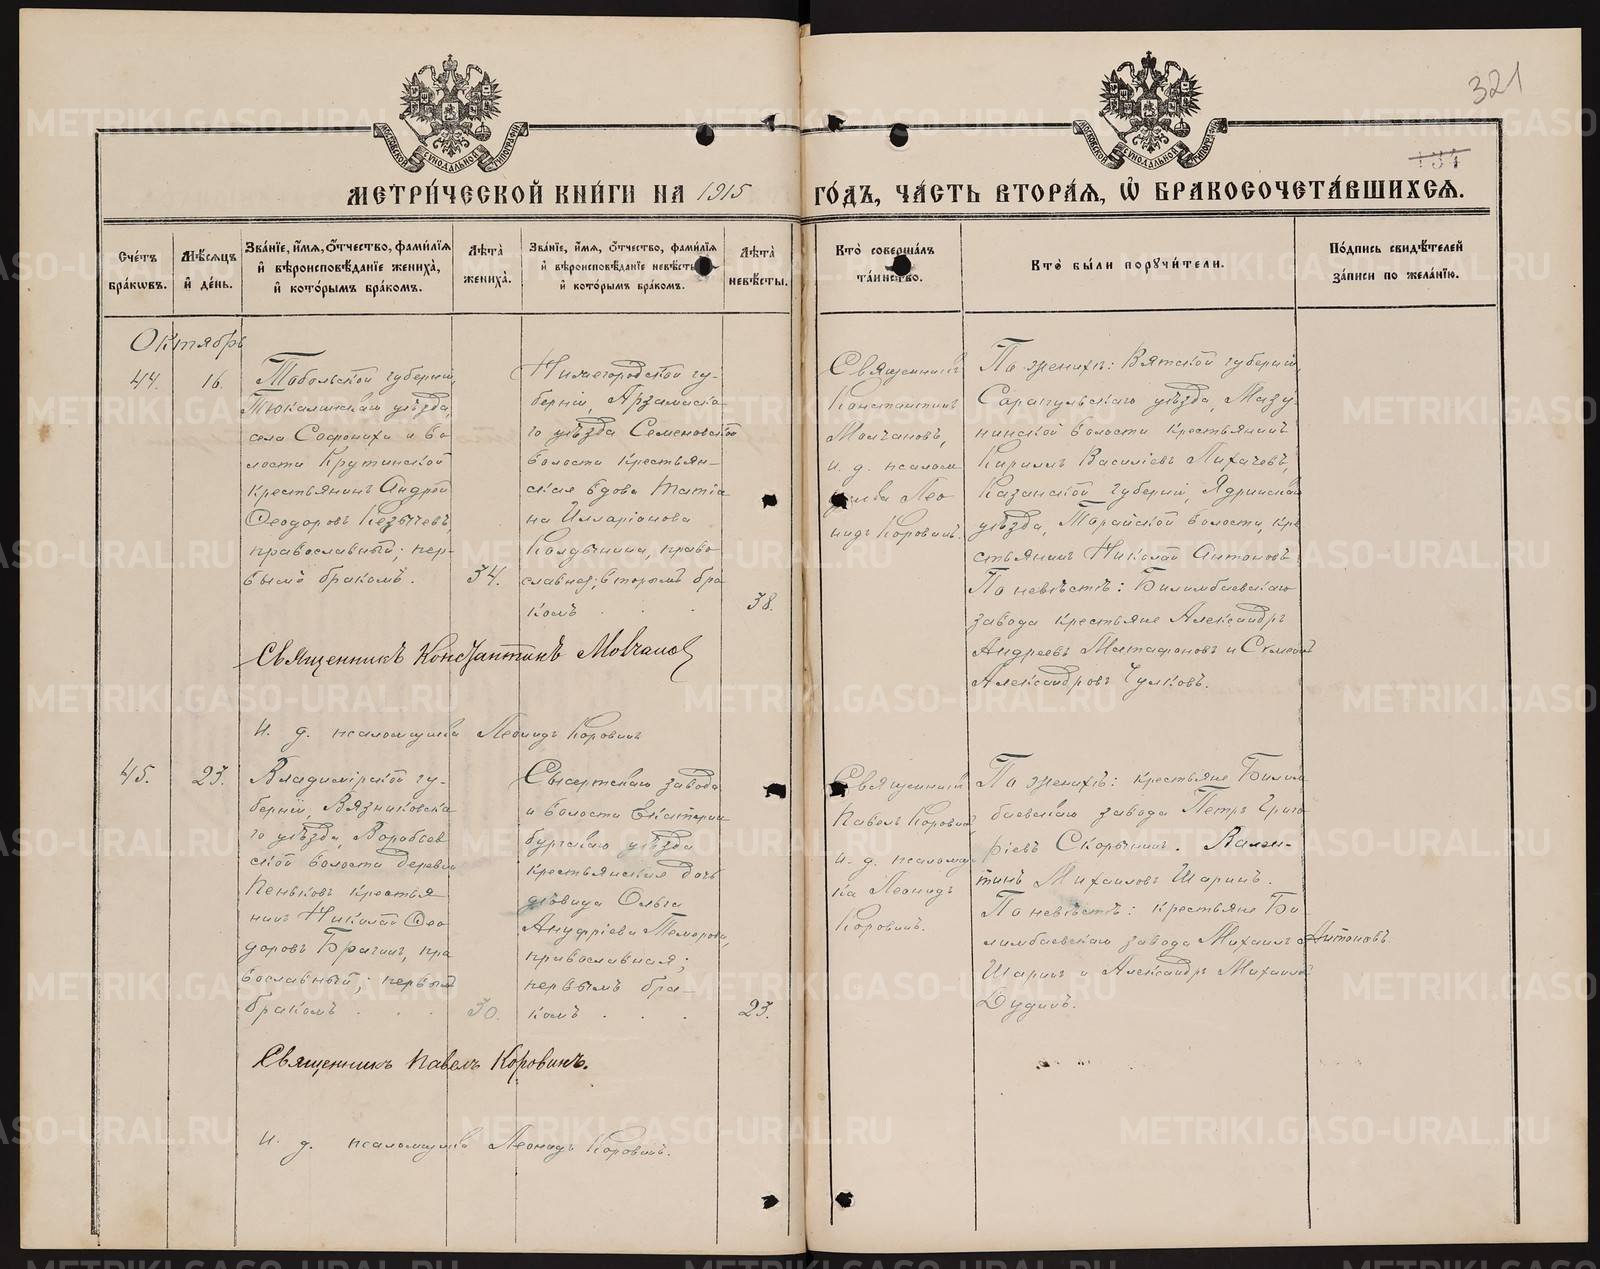 321
134
МЕТРИ́ЧЕСКОЙ КНИ́ГИ НА 1915 ГО́ДЪ, ЧА́СТЬ ВТОРА́Я, Ѡ БРАКОСОЧЕТА́ВШИХСЯ.
Сче́тъ бра́кѡвъ.
Мѣ́сяцъ и҆ де́нь.
Зва́нїе, и҆́мя, ѻ҆́тчество, фами́лїя и҆ вѣроисповѣ́данїе жениха̀, и҆ кото́рымъ бра́комъ.
Лѣ́та жениха̀.
Зва́нїе, и҆́мя, ѻ҆́тчество, фами́лїя и҆ вѣроисповѣ́данїе невѣ́сты, и҆ кото́рымъ бра́комъ.
Лѣ́та невѣ́сты.
Кто̀ соверша́лъ та́инство.
Кто̀ бы́ли порꙋчи́тели.
По́дпись свидѣ́телей за́писи по жела́нїю.
Октябрь
44.
16.
Тобольской губерніи,
Тюкалинскаго уѣзда,
села
и во
лости Крутинской
крестьянинъ Андрей
Ѳеодоровъ
православный; пер-
вымъ бракомъ.
34.
Нижегородской гу-
берніи, Арзамаска
го уѣзда Семеновской
волости крестьян-
ская вдова Татіа
на Илларіонова
право
славная; вторымъ бра
комъ . . .
38.
Священникъ
Константинъ
Молчановъ,
и. д. псалом
щика Лео
нидъ Коровинъ.
По женихѣ: Вятской губерніи,
Сарапульскаго уѣзда, Мазу-
нинской волости крестьянинъ
Кириллъ Василіевъ Лихачевъ,
Казанской губерніи, Ядринскаго
уѣзда, Торайской волости, кре
стьянинъ Николай Антоновъ
По невѣстѣ: Билимбаевскаго
завода крестьяне Александръ
Андреевъ Матафоновъ и Семенъ
Александровъ Чулковъ.
Священникъ Константинъ Молчановъ
И. д. псаломщика Леонидъ Коровинъ
45.
23.
Владимірской гу-
берніи, Вязниковска
го уѣзда,
ской волости деревни
Пеньковъ крестья
нинъ Николай Ѳео
доровъ Брагинъ, пра
вославный; первымъ
бракомъ . . .
30.
Сысертскаго завода
и волости Екатерин
бургскаго уѣзда
крестьянская дочь
дѣвица Ольга
Ануфріева
православная;
первымъ бра-
комъ . . .
23.
Священникъ
Павелъ Коровинъ,
и. д. псаломщи
ка Леонидъ
Коровинъ.
По женихѣ: крестьяне Билим
баевскаго завода Петръ Григо
ріевъ Скорынинъ. Вален-
тинъ Михаиловъ Шаринъ.
По невѣстѣ: крестьяне Би
лимбаевскаго завода Михаилъ Антоновъ
Шаринъ и Александръ Михаиловъ
Дудинъ.
Священникъ Павелъ Коровинъ.
И. д. псаломщика Леонидъ Коровинъ.
METRIKI.GASO-URAL.RU